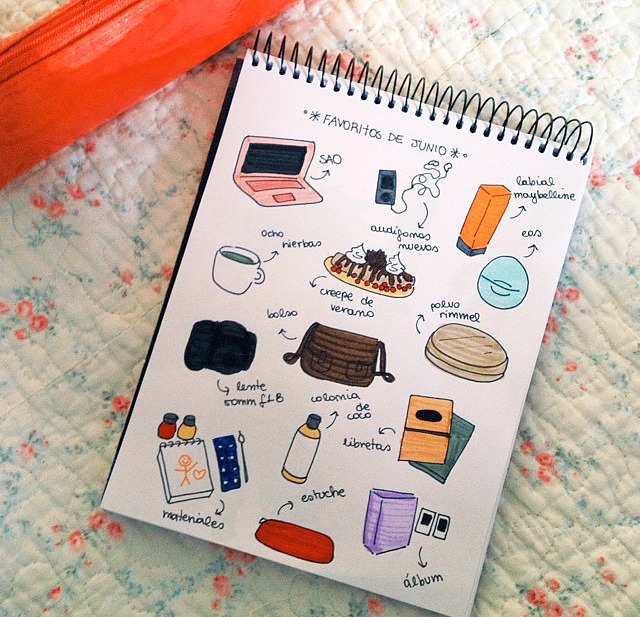 *FAVORITOS DE JUNIO*
SAO
audífonos
nuevos
labial
maybelline
ocho
hierbas
eos
creepe de
verano
polvo
rimmel
bolso
lente
50mm f1.8
colonia
de
coco
libretas
materiales
estuche
álbum